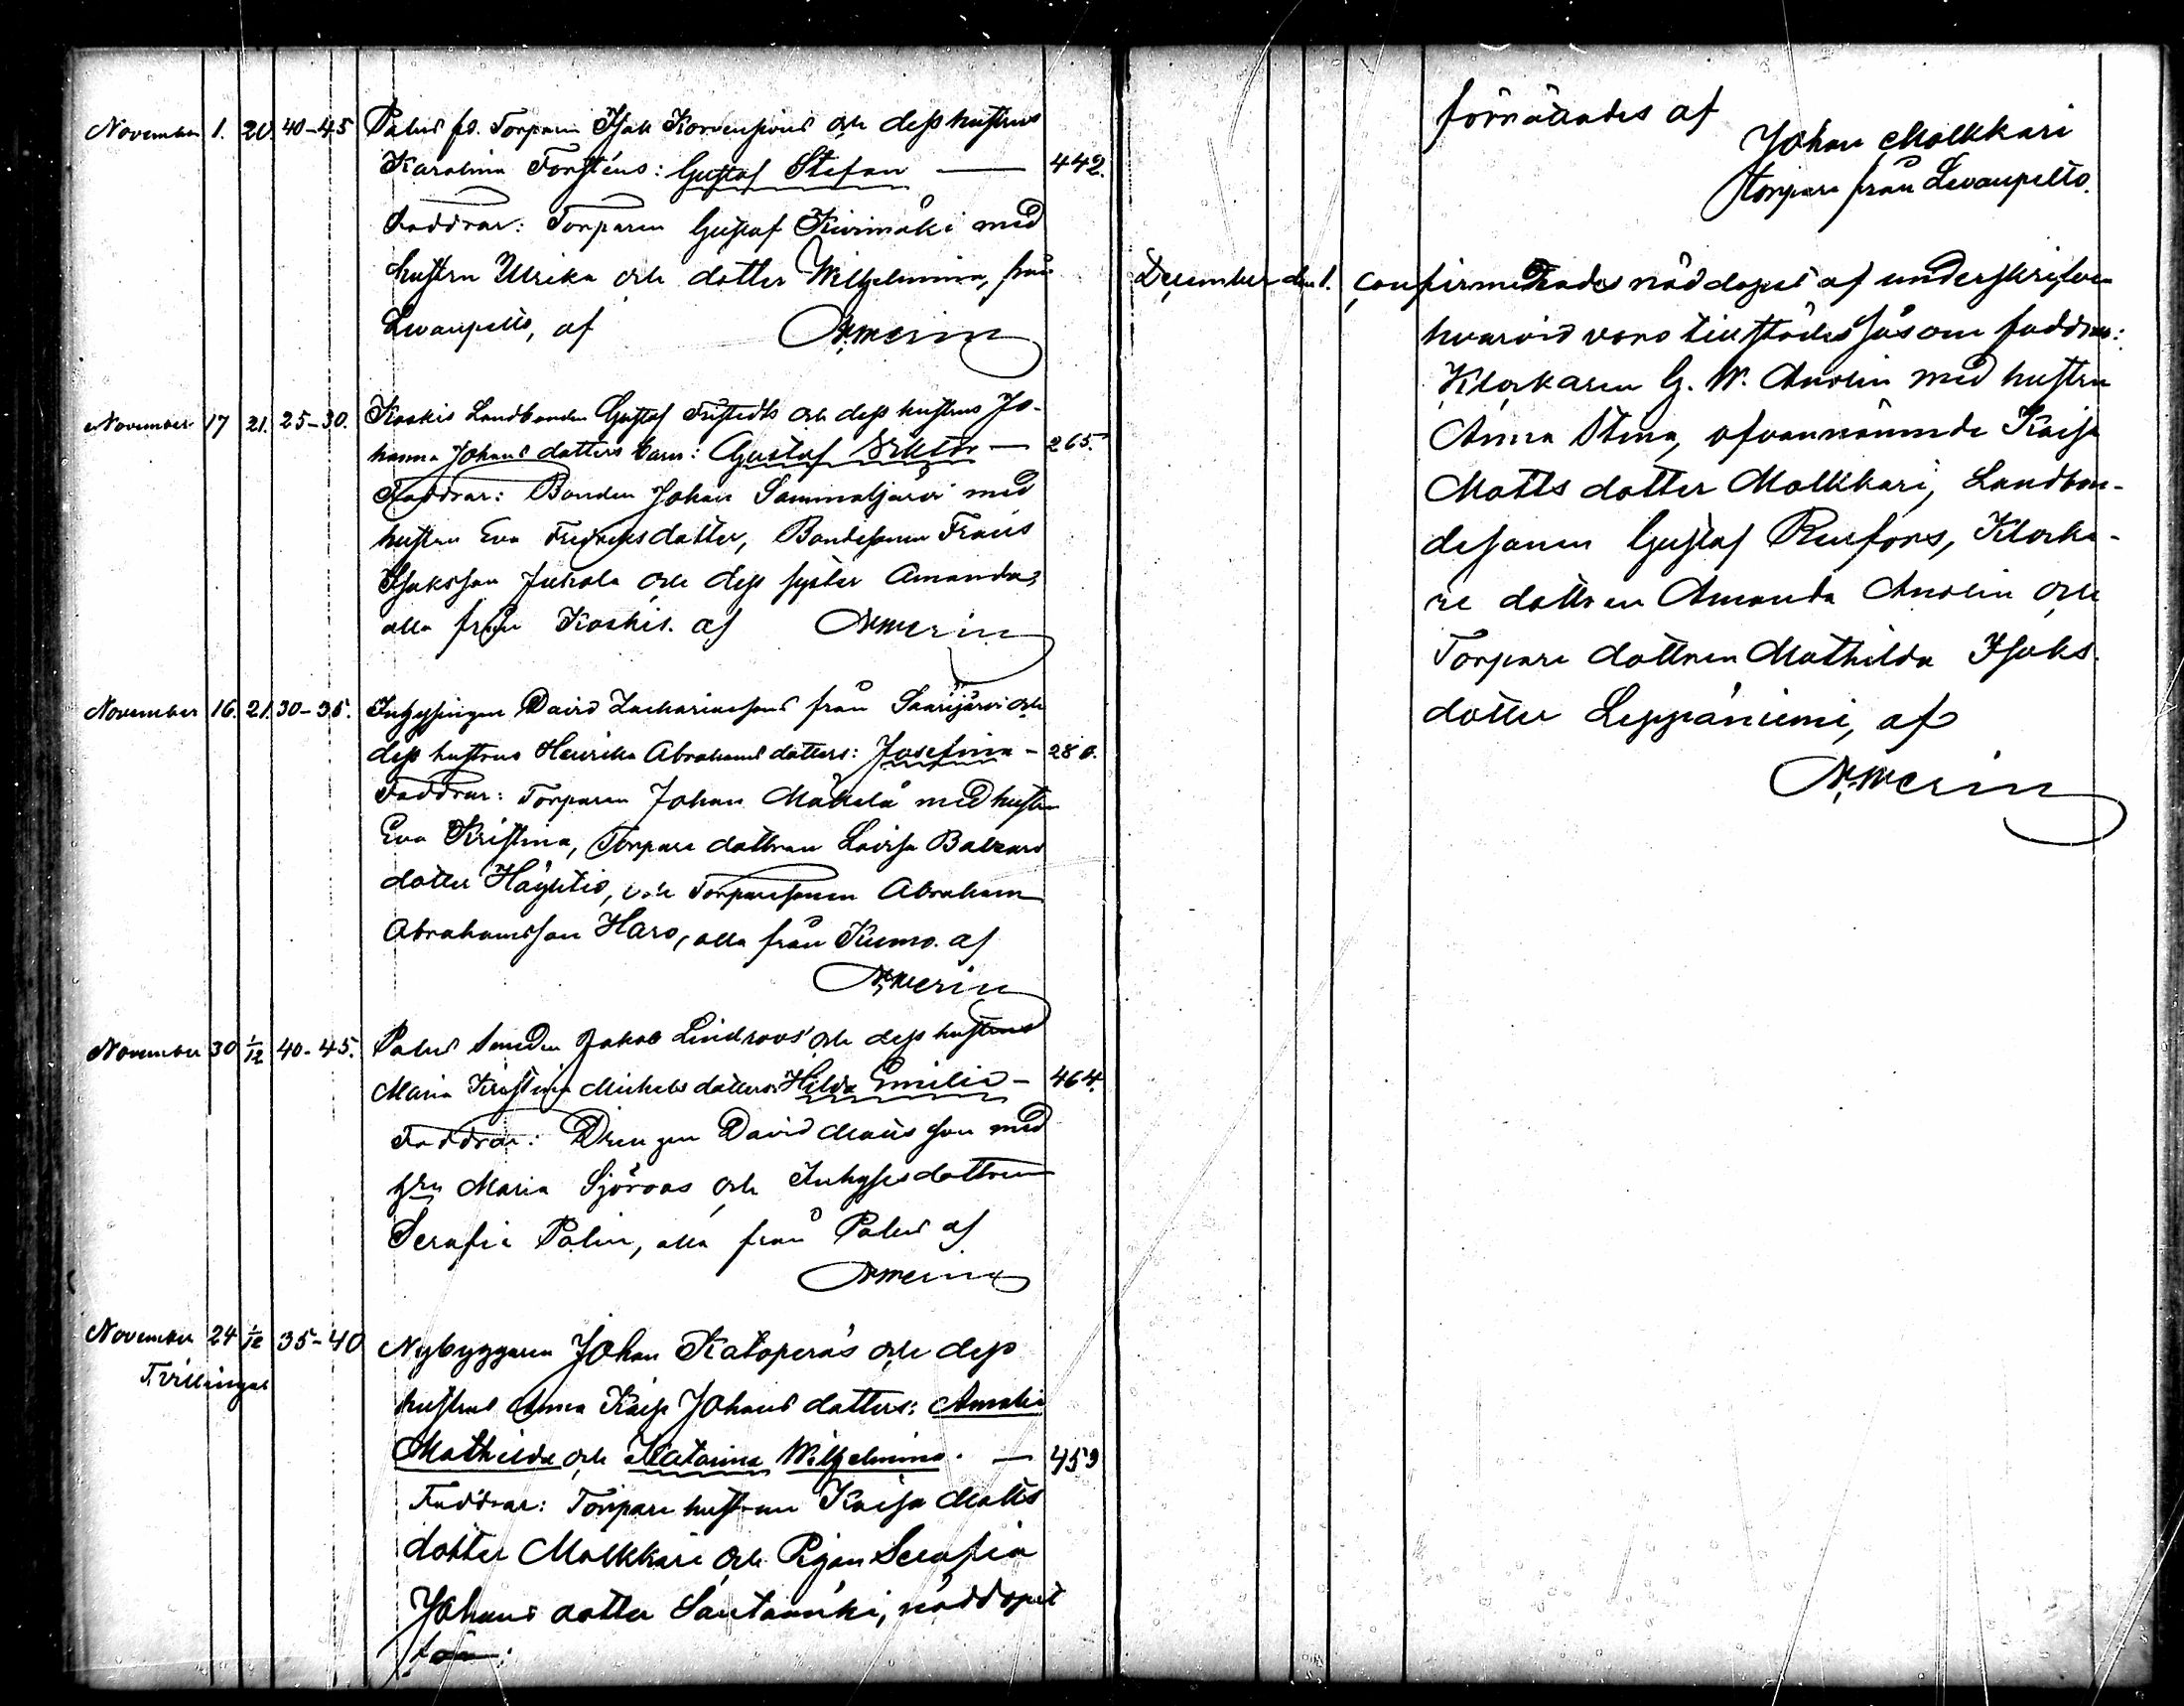 November 1. 20. 40-45 Palus fd. Torparen Isak Korvenpäus och dess hustrus
Karolina Forsténs: Gustaf Stefan — 442.
Faddrar: Torparen Gustaf Kivimäki med
hustru Ulrika och dotter Wilhelmina, från
Levanpelto, af Armerin
November 17 21. 25-30. Koskis Landbonden Gustaf Fristedts och dess hustrus Jo-
hanna Johans dotters barn: Gustaf Viktor — 265.
Faddrar: Bonden Johan Sammaljärvi med
hustru Eva Fredriks dotter, Bondesonen Frans
Isaksson Jukola och dess syster Amanda,
alla från Koskis. af Armerin
November 16. 21. 30-35. Inhysingen David Zachariassons från Saarijärvi och
dess hustrus Henrika Abrahams dotters: Josefina — 280.
Faddrar: Torparen Johan Mäkelä med hustru
Eva Kristina, Torpare dottren Lovisa Balzars
dotter Häyhtiö, och Torparesonen Abraham
Abrahamsson Haro, alla från Kumo. af
Armerin
November 30 1/12 40-45. Palus Smeden Jakob Lindroos och dess hustrus
Maria Kristina Michels dotters Hilda Emilia — 464.
Faddrar: Drengen David Matsson med
Maria Sjöroos och Inhyses dottren
Serafia Palin, alla från Palus af
Armerin
November 24 1/12 35-40 Nybyggaren Johan Katoperäs och dess
Tvillingar
hustrus Anna Kaisa Johans dotters: Amalia
Mathilda och Katarina Wilhelmina. — 459
Faddrar: Torpare hustrun Kaisa Matts
dotter Malkkari och Pigan Serafia
Johans dotter Santamäki, nöddopet
förrättades af
Johan Malkkari
torpare från Levanpelto.
December den 1. confirmerades nöddopet af underskrifven
hvarvid voro tillstädes såsom faddrar:
Klockaren G. W. Anolin med hustru
Anna Stina, ofvannämnde Kaisa
Matts dotter Malkkari, Landbon-
desonen Gustaf Renfors, Klocka-
re dottren Amanda Anolin och
Torpare dottren Mathilda Isaks-
dotter Leppäniemi, af
Armerin